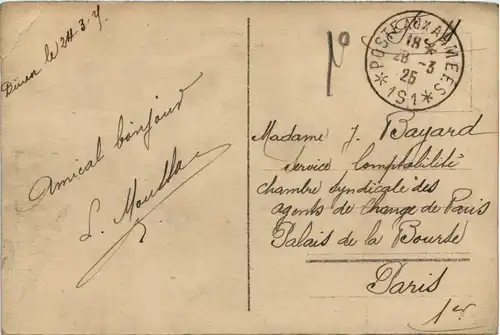 le 24-3-
Amical bonjour
POSTE AUX ARMEES
18
28 -3
25
*151*
Madame J. Bayard
Service Comptabilité
chambre syndicale des
agents de change de Paris
Palais de la Bourse
Paris
1er